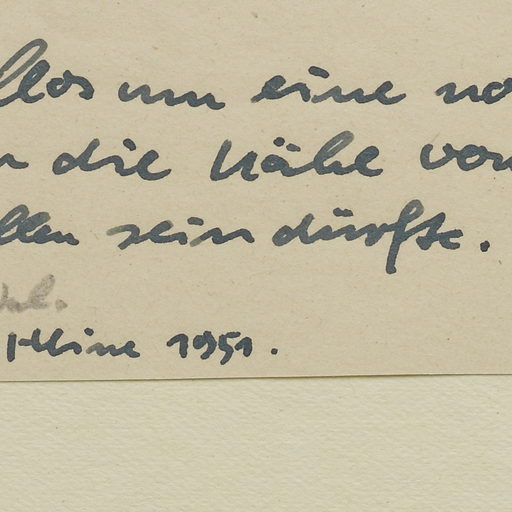 llos um eine no
n die Nähe von
llen sein dürfte.
Heine 1951.